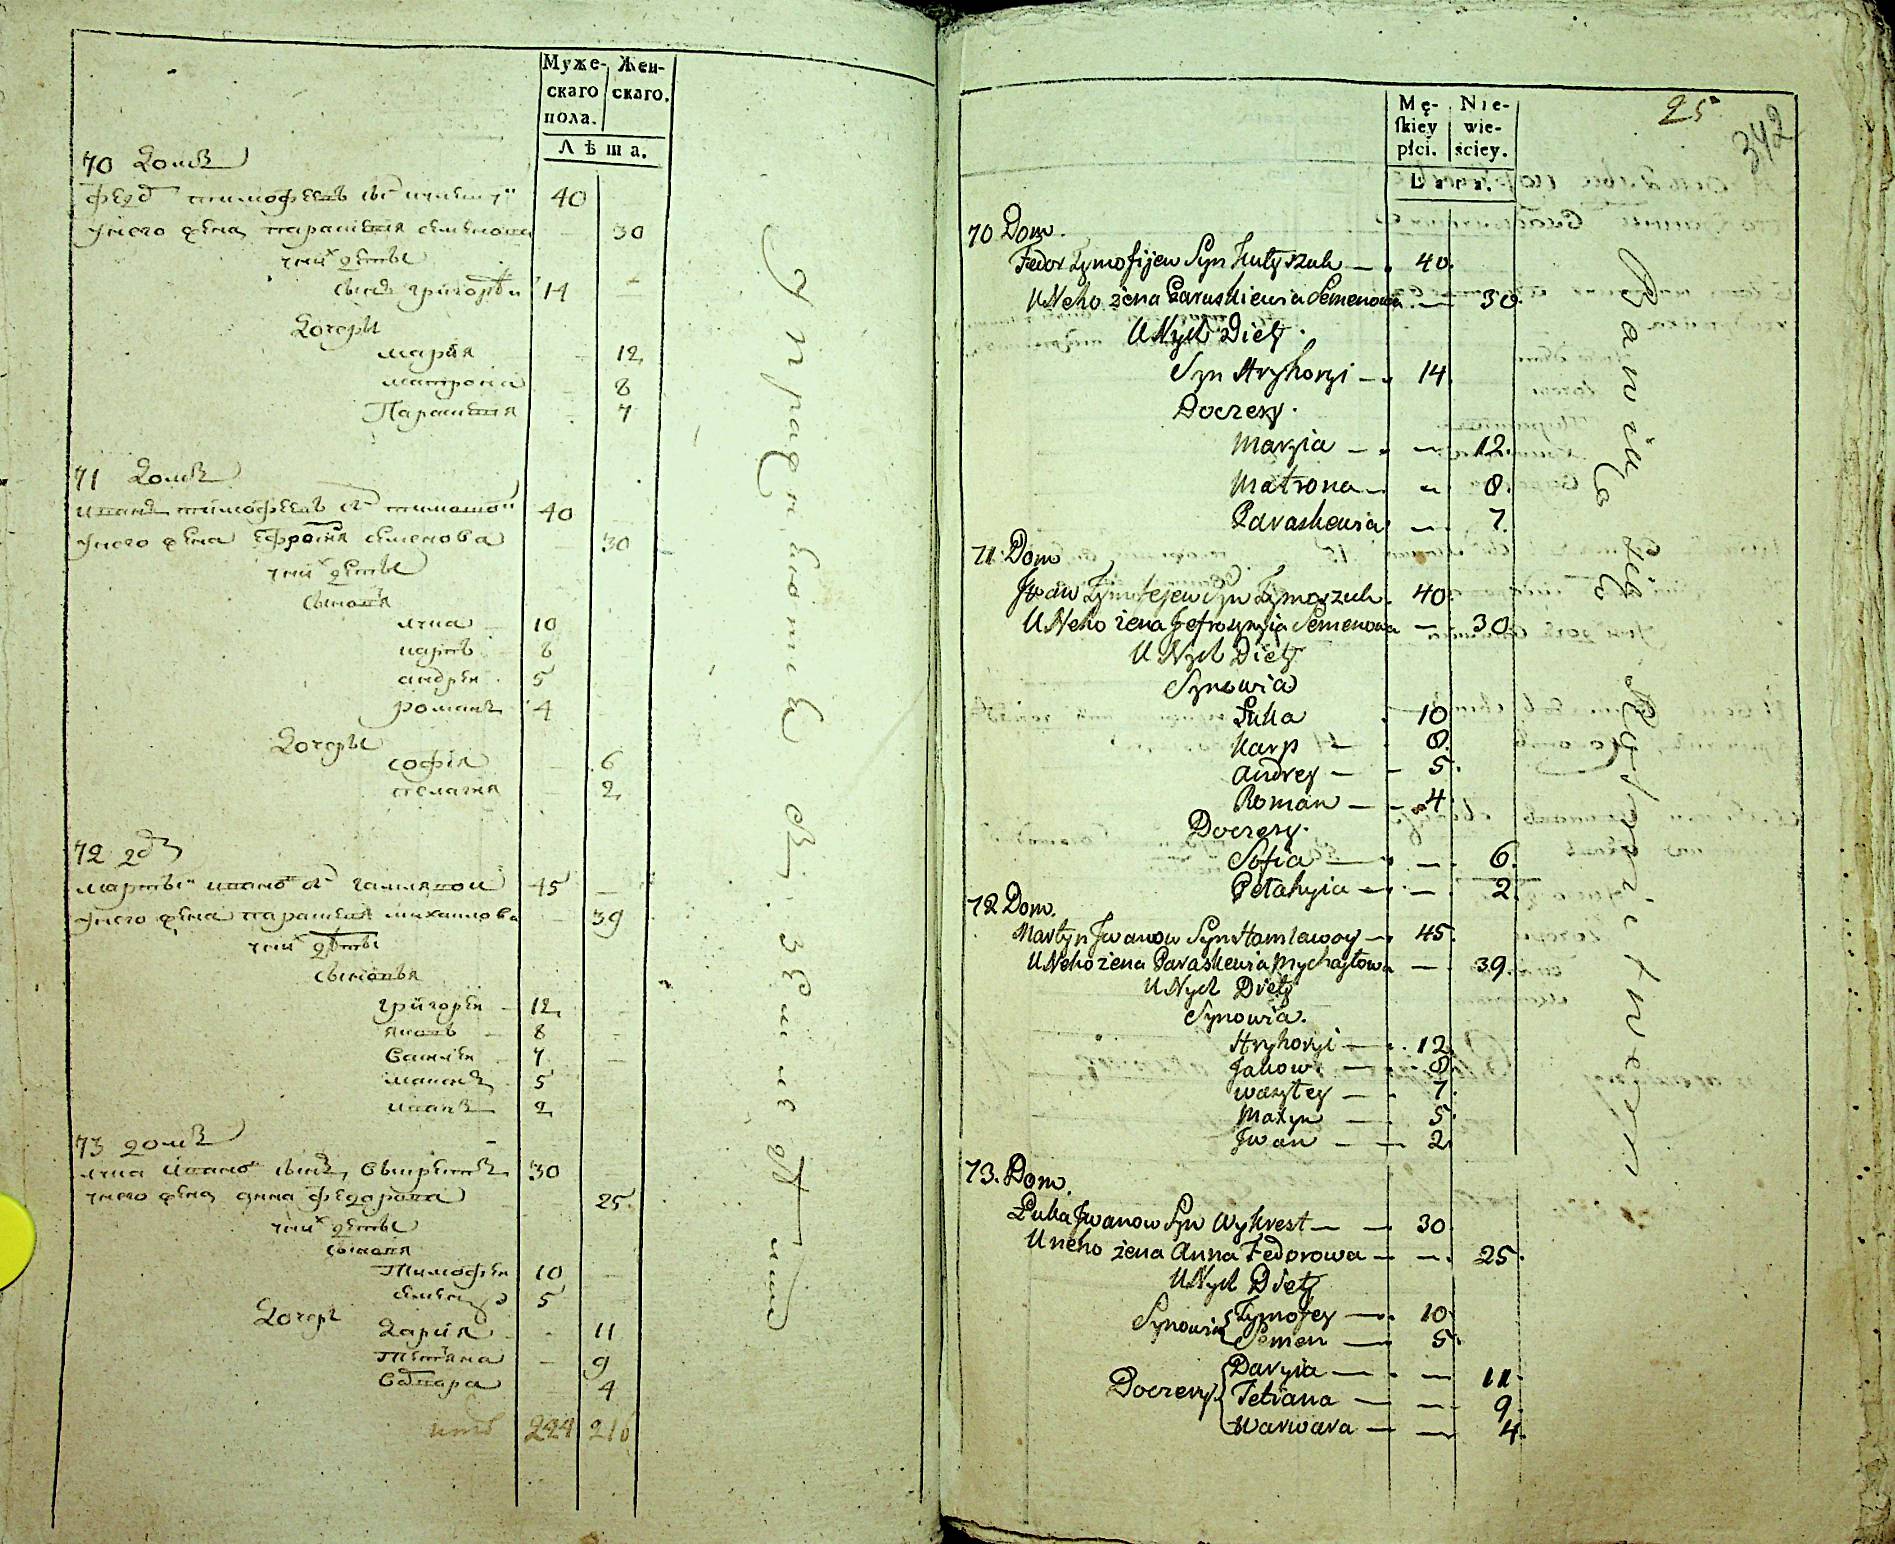 Муже-
скаго
пола.
Жен-
скаго.
Лѣта.
70 Домъ
40
унего жена парасковия семенова 30
унихъ дѣтъи
сынъ григорѣи 14
Дочери
мария 12
матрона 8
Параскевия 7
71 Домъ
40
унего жена Ефросиния семенова 30
унихъ дѣтъи
сыновя
лука 10
карпъ 8
андреи 5
романъ 4
Дочеры
софия 6
пелагия 2
72 дом
45
унего жена параскевия михаилова 39
унихъ дѣтъи
сыновья
григореи 12
яковъ 8
василеи 7
5
иванъ 2
73 домъ
лука иванов сынъ 30
унего жена анна федорова 25
унихъ дѣтъи
сыновя
Тимофеи 10
семен 5
Дочери
Дария 11
Тетяна 9
Варвара 4
224 216
Mę-
ſkiey
płci.
Nie-
wie-
ściey.
Lata.
25
342
70 Dom.
Fedor Tymofijew Syn 40.
U Neho żena Paraskiewia Semenowa — 30.
U Nych Diety.
Syn Hryhoryi — 14
Doczery.
Maryia — — 12.
Matrona — 8.
Paraskewia — 7.
71. Dom
Jwan Tymofejew Syn Tymoszuk. 40.
U Neho żena Jefrosynyia Semenowa — 30.
U Nych Diety
Synowia
Łuka 10
Karp — 8.
Andrey — 5.
Roman — 4
Doczery.
Sofia — — 6.
Pelahyia — — 2.
72 Dom.
Martyn Jwanow Syn Hamlawoy — 45.
U Neho żena Paraskewia Mychayłowa — 39.
U Nych Diety
Synowia.
Hryhoryi — 12.
Jakow. — 8.
Wasyley — 7.
Maxym — 5.
Jwan — 2
73. Dom.
Łuka Jwanow Syn Wykrest — 30
U neho żena Anna Fedorowa — — 25.
U Nych Diety
Synowia { Tymofey — 10
Semen — 5.
Doczery { Daryia — — 11.
Tetiana — — 9.
Warwara — — 4.